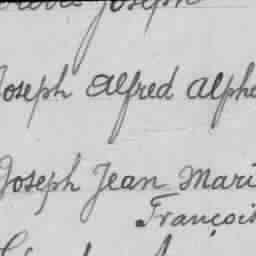 Joseph
Joseph Alfred Alph
Joseph Jean Mari
François